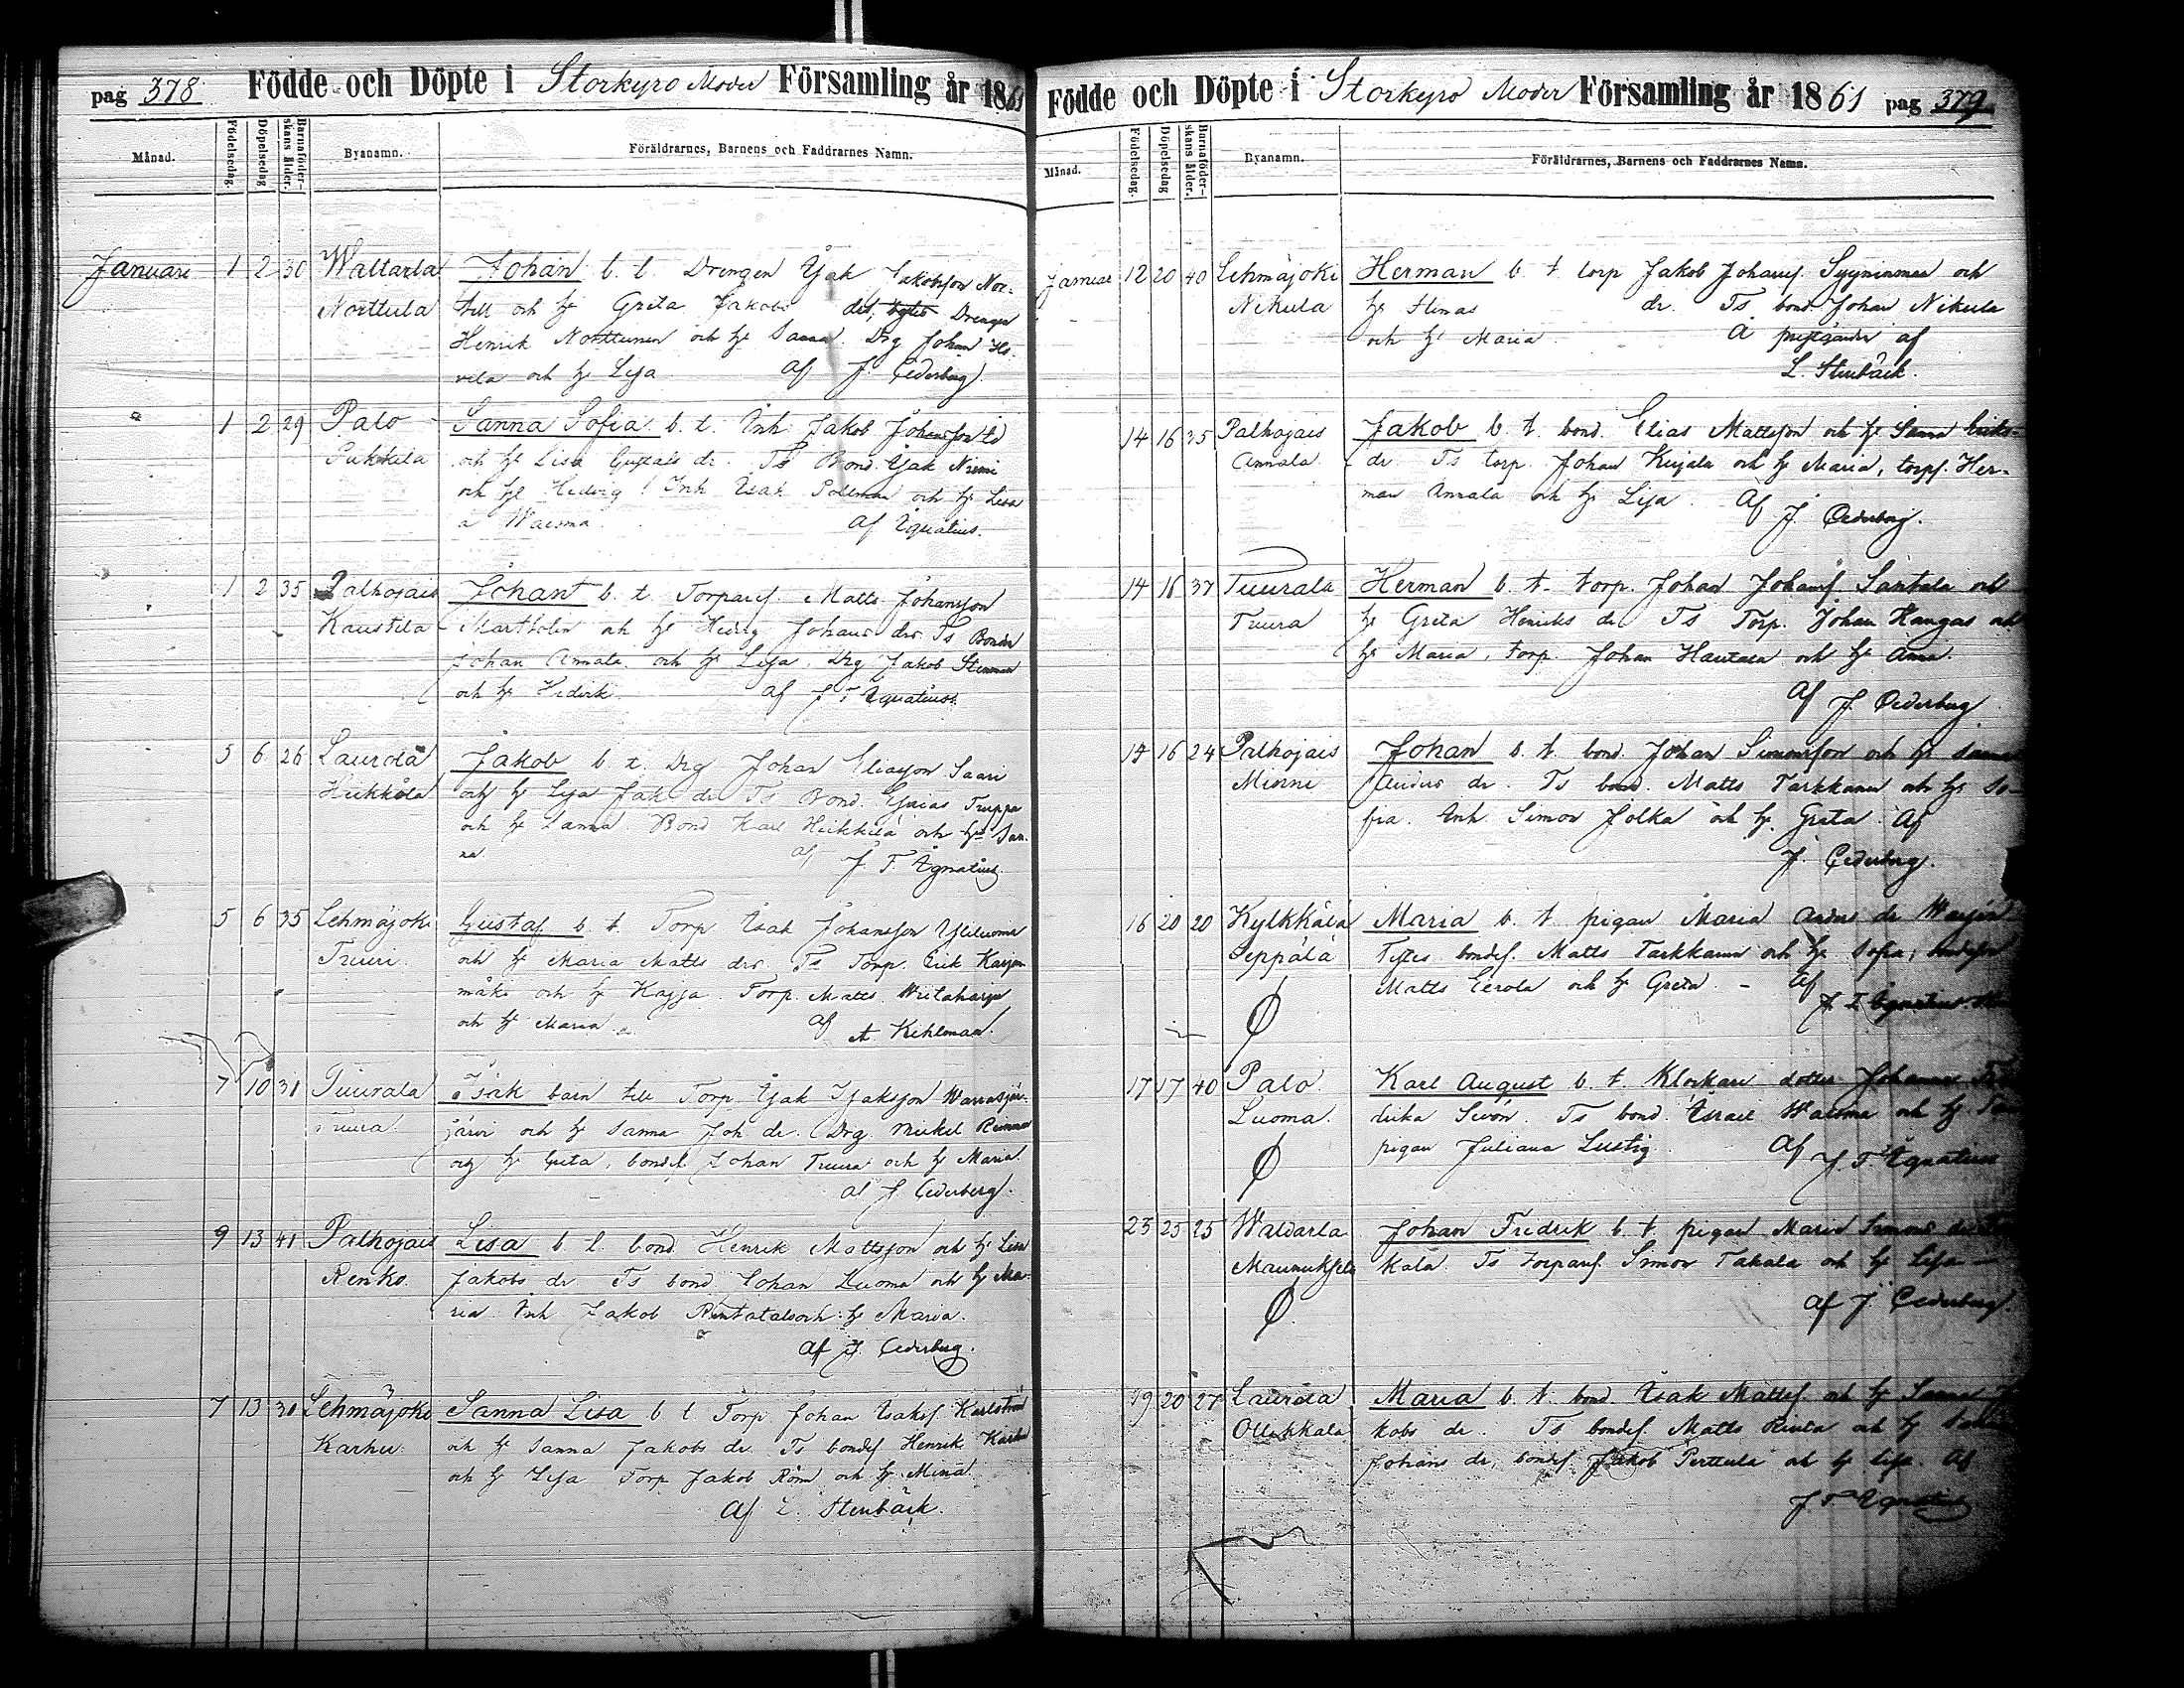 pag 378. Födde och Döpte i Storkyro Moder Församling år 1861
Månad. Födelsedag. Döpelsedag Barnaföder-skans ålder. Byanamn. Föräldrarnes, Barnens och Faddrarnes Namn.
Januari 1 2 30 Waltarla Johan b. t. Drengen Isak Jakobsson Nor-
Norttula till och h. Greta Jakobs dr, Drengen
Henrik Norttunen och h. Sanna. Drg Johan
vela och h. Lisa af J. Cederberg.
1 2 29 Palo Sanna Sofia b. t. Inh. Jakob Johansson
Pukkila och h. Lisa Gustafs dr. Ts Bond. Isak Niemi
och h. Hedvig! Inh Isak Pollman och h. Lisa
a Warsma. af Ignatius.
1 2 35 Palhojais Johan b. t. Torparef. Matts Johansson
Kaustila Martholin och h. Hedvig Johans dr. Ts Bonden
Johan Annala och h. Lisa, Drg Jakob Stenman
och h. Hedvik. af J. T. Ignatius.
5 6 26 Laurola Jakob b. t. Drg Johan Eliasson Saari
Heikkila och h. Lisa Jak. dr Ts Bond. Esaias Truppa
och h. Sanna. Bond Karl Heikkilä och h. San-
na. af J. T. Ignatius.
5 6 35 Lehmäjoki Gustaf b. t. Torp Isak Johansson Yliluoma
Tuuri. och h. Maria Matts dr. Ts Torp. Erik Karja-
mäki och h. Kajsa. Torp. Matts Wiitaharju
och h. Maria. af A Kihlman.
7 10 31 Tuurala Isak barn till Torp Isak Isaksson
Tuura. järvi och h. Sanna Joh. dr. Drg. Mickel
och h. Greta, bondef. Johan Tuura och h. Maria.
af J. Cederberg.
9 13 41 Palhojais Lisa b. t. bond Henrik Mattsson och h. Lisa
Renko. Jakobs dr Ts bond. Johan Luoma och h. Ma-
ria Inh Jakob Rintatalo och h. Maria.
af J. Cederberg.
7 13 30 Lehmäjoki Sanna Lisa b. t. Torp Johan Isaksf.
Karhu. och h. Sanna Jakobs dr. Ts bondef Henrik Karhu
och h. Lisa Torp Jakob och h. Mina.
Af L. Stenbäck.
Födde och Döpte i Storkyro Moder Församling år 1861 pag 379.
Månad. Födelsedag. Döpelsedag Barnaföder-skans ålder. Byanamn. Föräldrarnes, Barnens och Faddrarnes Namn.
Januar 12 20 40 Lehmäjoki Herman b. t. torp Jakob Johansf. och
Nikula h. Stinas dr. Ts bond. Johan Nikula
och h. Maria. Å prestgården af
L. Stenbäck.
14 16 35 Palhojais Jakob b. t. bond. Elias Mattsson och h. Sanna Eriks-
Annala. dr. Ts torp. Johan Kujala och h. Maria, torpf. Her-
man Annala och h. Lisa. Af
J. Cederberg.
14 18 37 Tuurala Herman b. t. torp. Johan Johansf Santala och
Tuura h. Greta Henriks dr Ts Torp. Johan Kangas och
h. Maria, torp. Johan Hautala och h. Anna.
Af J. Cederberg
14 16 24 Palhojais Johan b. t. bond. Johan Simonsson och h. Sanna
Minni Anders dr. Ts bond. Matts Tarkkanen och h. So-
fia. Inh. Simon Jolka och h. Greta. Af
J. Cederberg.
16 20 20 Kylkkälä Maria b. t. pigan Maria Anders dr
Seppälä Testes bondef. Matts Tarkkanen och h. Sofia,
Matts Eerola och h. Greta. - Af
J. T. Ignatius.
17 17 40 Palo Karl August b. t. Klockare dotter Johanna
Luoma. drika Sivón. Ts bond. Israel Warsma och h.
pigan Juliana Lustig. Af J T Ignatius
23 25 25 Waldarla Johan Fredrik b. t. pigan Maria Simons dr
Maunuksela kala. Ts Torparef. Simon Takala och h. Lisa -
af J. Cederberg.
19 20 27 Laurola Maria b. t. bond. Isak Mattsf. och h. Sanna
Ollikkala kobs dr. Ts bondef. Matts Rinta och h.
Johans dr, bondef. Jakob Perttula och h. Lisa. Af
J. T. Ignatius